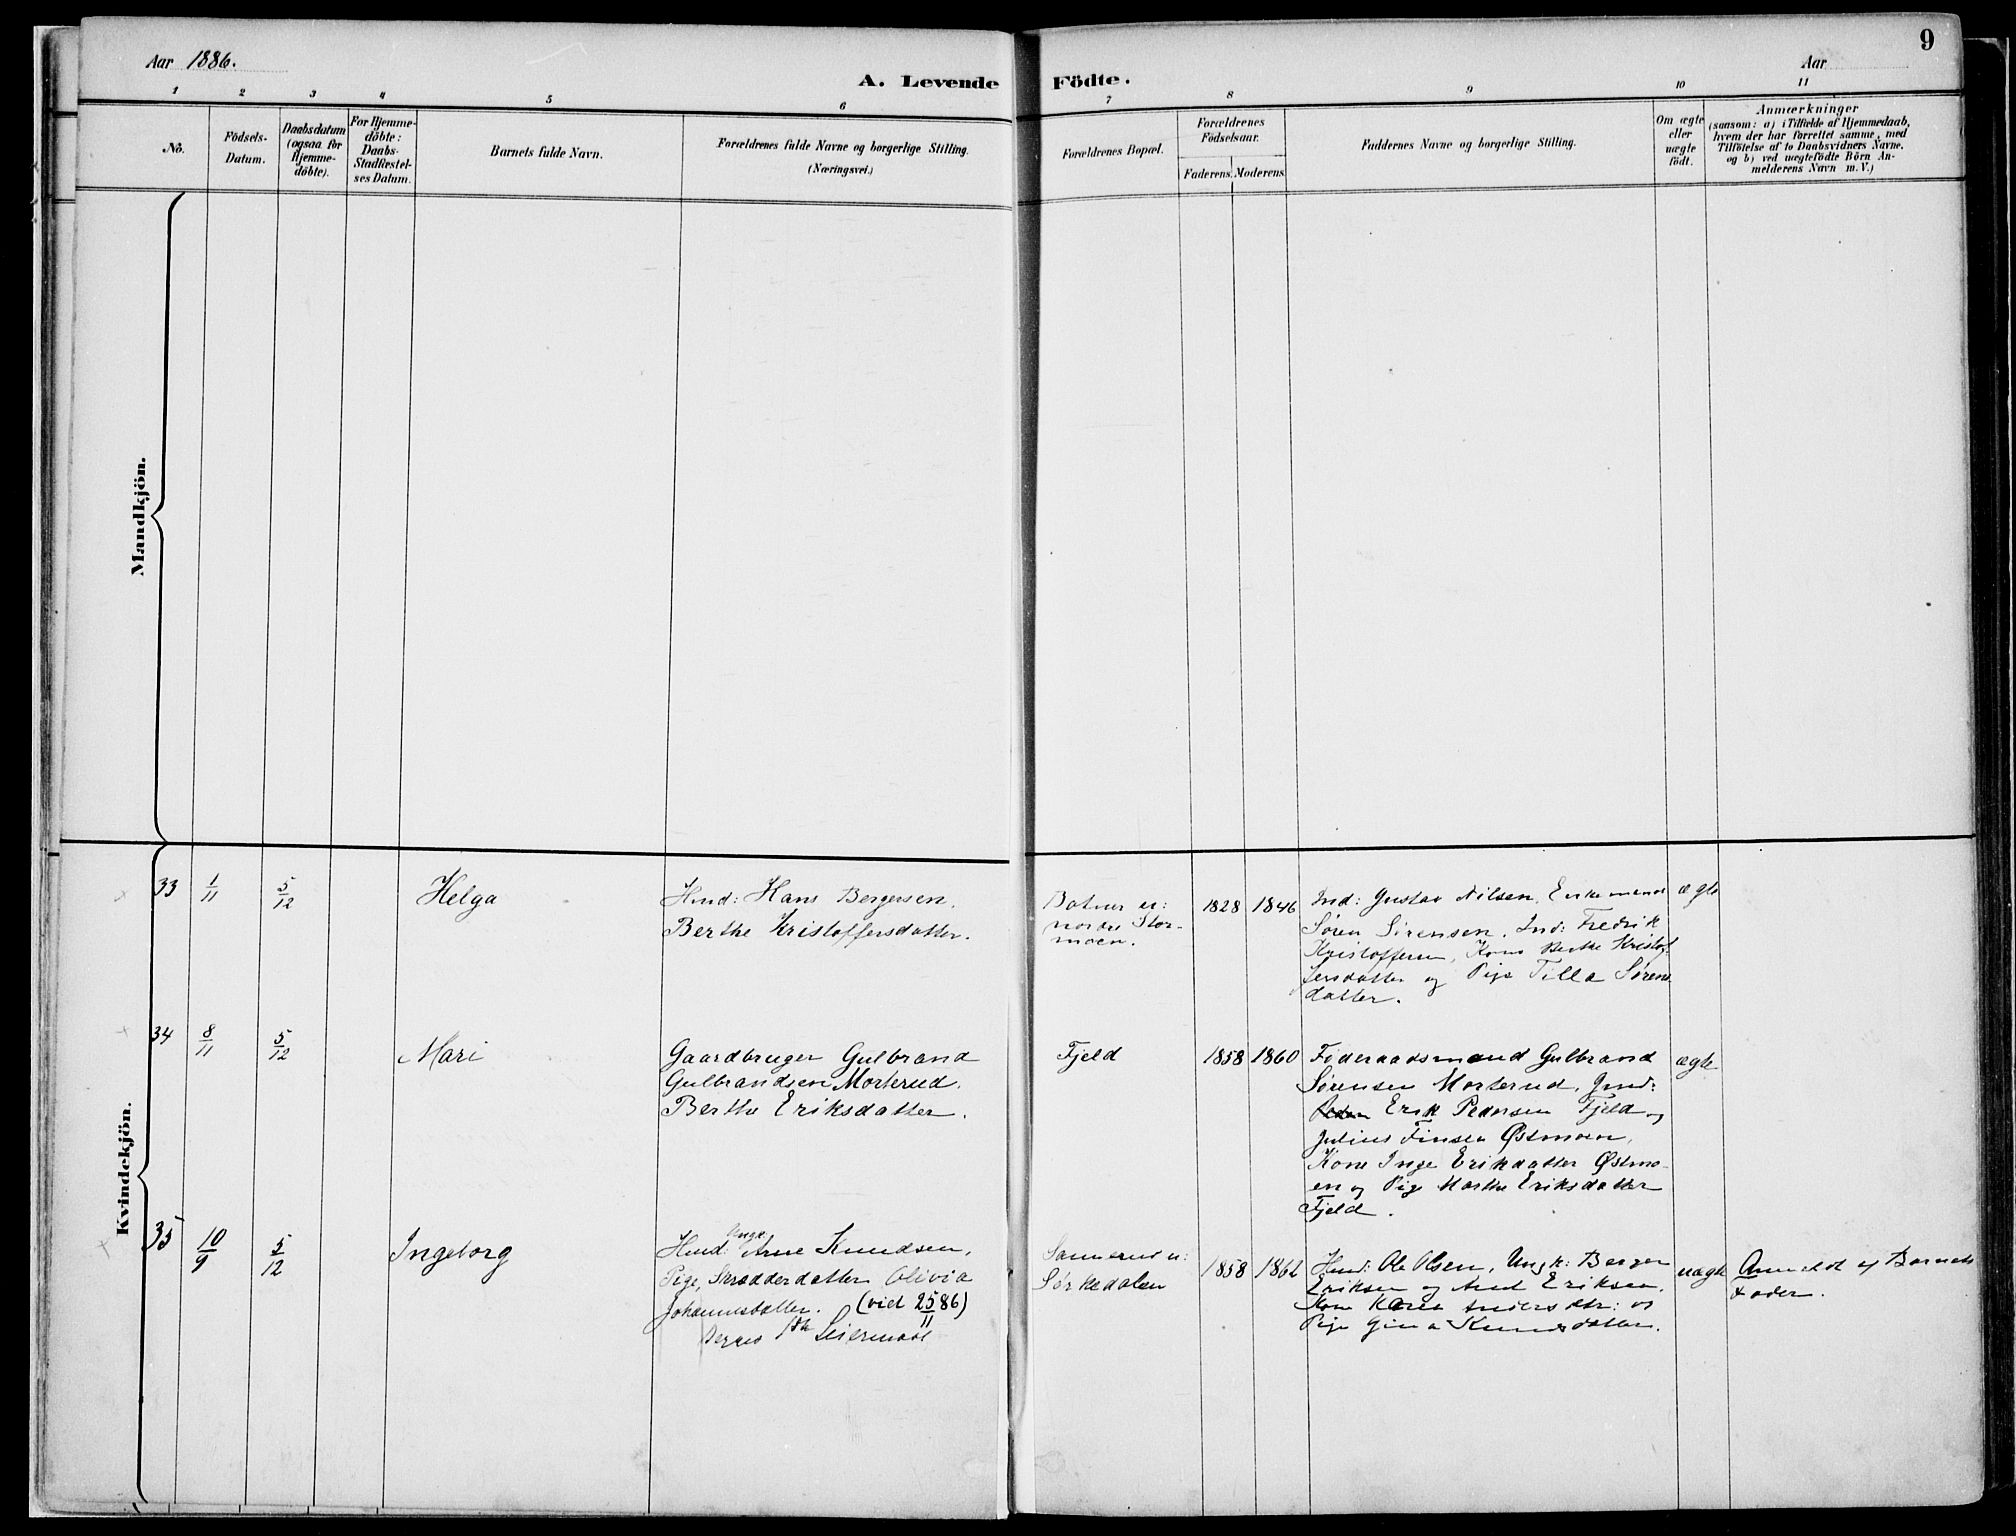 Aar 1886.
9
Aar
A. Levende Födte.
1 2 3 4 5 6 7 8 9 10 11
No.
Födsels-
Datum.
Daabsdatum
(ogsaa for
Hjemme-
döbte).
For Hjemme-
döbte:
Daabs-
Stadfæstel-
ses Datum.
Barnets fulde Navn.
Forældrenes fulde Navne og borgerlige Stilling.
(Næringsvei.)
Forældrenes Bopæl.
Forældrenes
Födselsaar.
Faderens. Moderens
Faddernes Navne og borgerlige Stilling.
Om ægte
eller
uægte
födt.
Anmærkninger
(saasom: a) i Tilfælde af Hjemmedaab,
hvem der har forrettet samme, med
Tilföielse af to Daabsvidners Navne,
og b) ved uægtefödte Börn An-
melderens Navn m. V.)
Mandkjön.
Kvindekjön.
33 1/11 5/12 Helga
Hmd: Hans Bergersen.
Berthe Kristoffersdatter.
nordre Stor-
moen.
1828 1846
Ind: Gustav Nilsen, Enkemand
Søren Sørensen. Ind: Fredrik
Kristoffersen, Kone Berthe Kristof-
fersdatter og Pige Tilla Sørens-
datter.
ægte
34 8/11 5/12 Mari
Gaardbruger Gulbrand
Gulbrandsen Morterud.
Berthe Eriksdatter.
Fjeld
1858 1860
Føderaadsmand Gulbrand
Sørensen Morterud,
Erik Pedersen Fjeld og
Julius Finsen Østmoen,
Kone Inge Erikdatter Østmo-
en og Pige Marthe Eriksdatter
Fjeld.
ægte
35 10/9 5/12 Ingeborg
Hmd: Arne Knudsen,
Pige, Skrædderdatter Olivia
Johannesdatter. (vied 25/11 86)
Deres 1ste Leiermaal
Sørkedalen
1858 1862
Hmd: Ole Olsen, Ungk: Berger
Eriksen og Eriksen.
Kone Karen Andersdtr: og
Pige Gina Knudsdatter.
uægte
Anmeldt af Barnets
Fader.